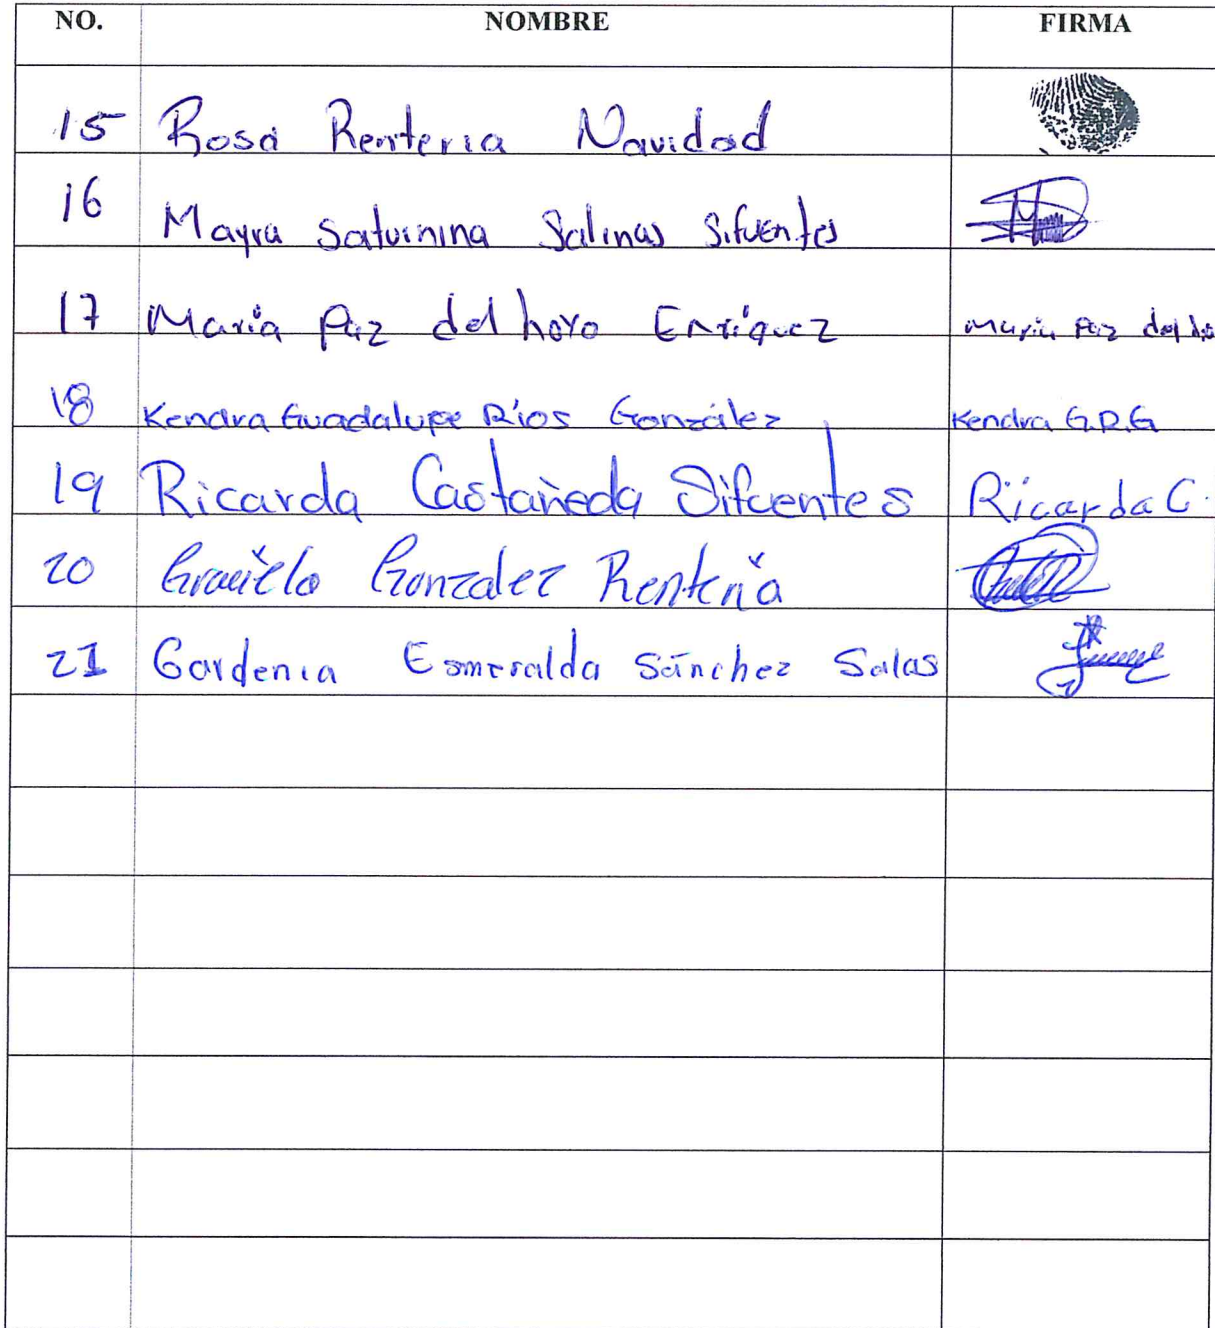 NO. NOMBRE FIRMA
15 Rosa Renteria Navidad
16 Mayra Saturnina Salinas Sifuentes
17 María Paz del hoyo Enríquez María Paz del ho
18 Kendra Guadalupe Ríos González Kendra G.R.G
19 Ricarda Castañeda Sifuentes Ricarda C.
20 Graciela Gonzalez Rentería
21 Gardenia Esmeralda Sánchez Salas